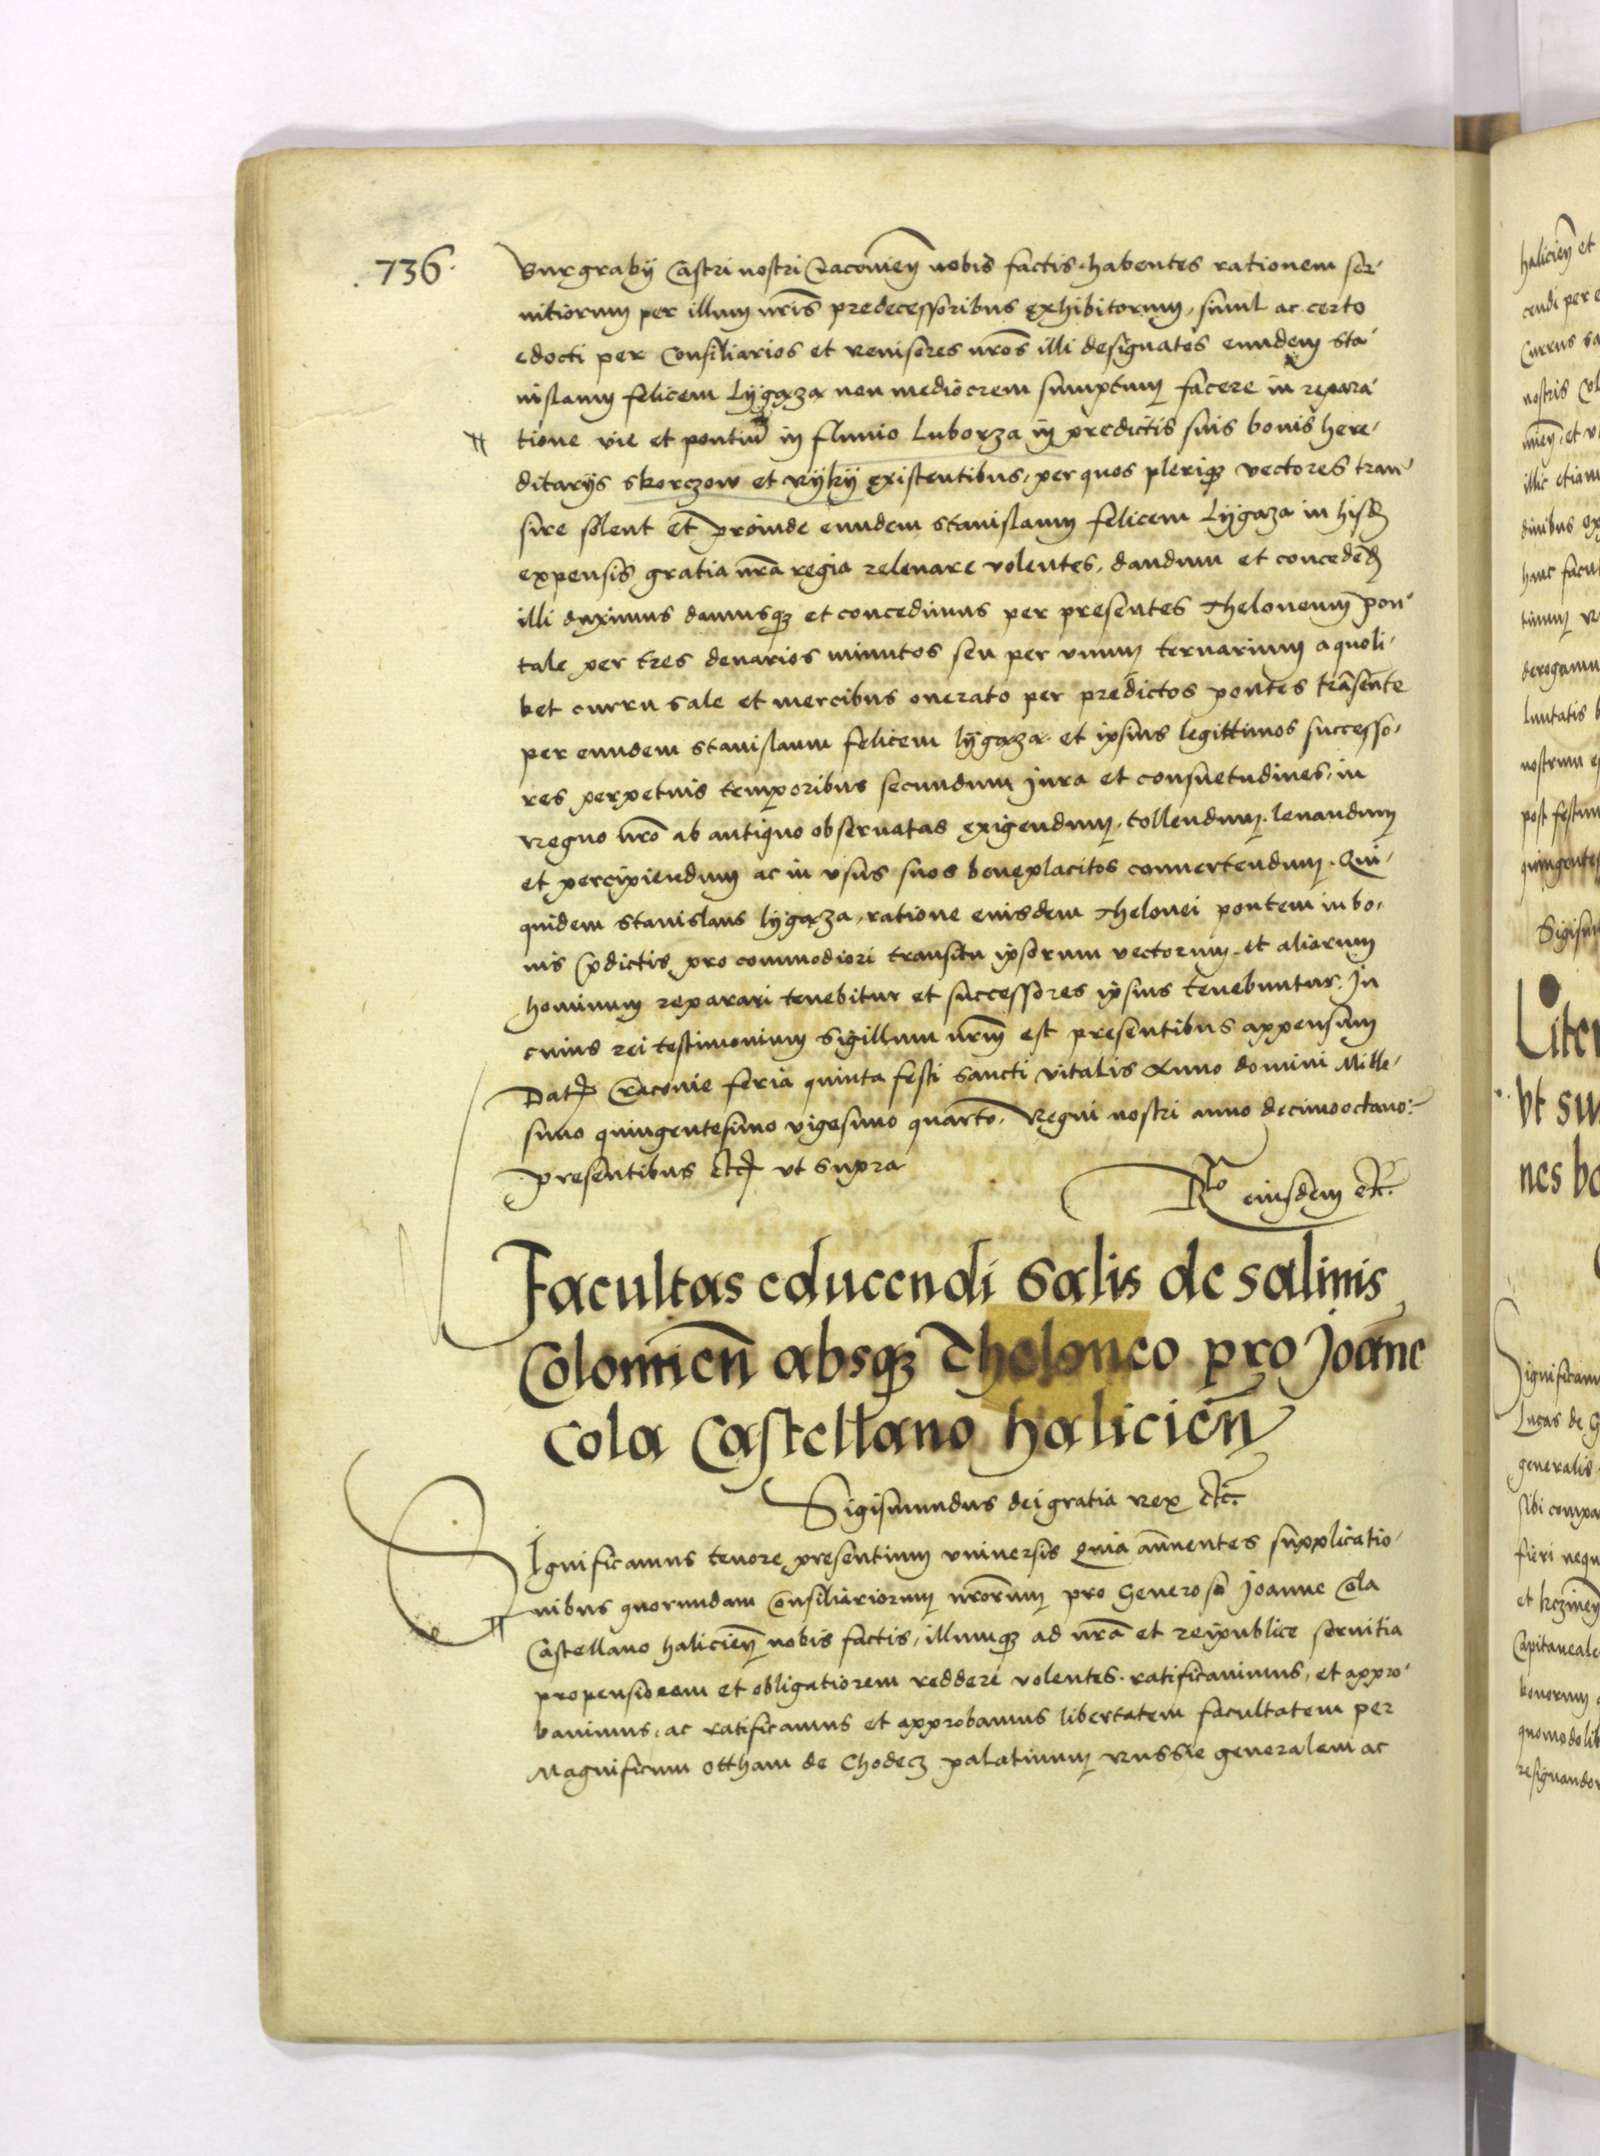 736
Burgrabÿ Castri nostri Cracovien nobis factis. habentes rationem ser-
vitiorum per illum nris predecessoribus exhibitorum, simul ac certo
edocti per Consiliarios et revisores nros illi designatos eundem Sta-
nislaum felicem Lÿgąza non mediocrem sumptum facere in repara-
tione vie et pontium in fluvio Luborza in predictis suis bonis here-
ditarÿs Skorczow et Rÿkÿ existentibus, per quos pleriqz vectores tran-
sire solent Et proinde eundem Stanislaum felicem Lÿgąza in hisd
expensis gratia nra regia relevare volentes, dandum et conceded
illi duximus damusqz et concedimus per presentes Theloneum pon-
tale per tres denarios minutos seu per unum ternarium a quoli-
bet curru sale et mercibus onerato per predictos pontes transeunte
per eundem Stanislaum felicem lÿgąza et ipsius legittimos successo-
res perpetuis temporibus secundum Jura et consuetudines, in
Regno nro ab antiquo observatas exigendum. tollendum. levandum
et percipiendum ac in usus suos beneplacitos convertendum. Qui-
quidem Stanislaus lÿgąza, ratione eiusdem Thelonei pontem in bo-
nis pdictis pro commodiori transitu ipsorum vectorum. et aliorum
hominum reparari tenebitur et successores ipsius tenebuntur. In
cuius rei testimonium Sigillum nrm est presentibus appensum
Dat Cracovie feria quinta festi Sancti vitalis Anno domini Mille-
simo quingentesimo vigesimo quarto. Regni nostri anno decimooctavo.
presentibus etc ut supra
Rlo eiusdem etc.
Facultas educendi Salis de salinis
Colomien absqz Theloneo pro Joanne
Cola Castellano Halicien
Sigismundus dei gratia rex etc.
Significamus tenore presentium universis Quia annuentes supplicatio-
nibus quorundam Consiliariorum nrorum pro Generoso Joanne Cola
Castellano halicien nobis factis, illumqz ad nra et reipublice servitia
propensiorem et obligatiorem reddere volentes. ratificavimus, et appro-
bavimus, ac ratificamus et approbamus libertatem facultatem per
Magnificum Ottham de Chodecz palatinum Russie generalem ac
halicien et
cendi per
Currus sa
nostris Col
illic etiam
dinibus ex
hanc facul
derogamu
nostrum
post festum
quingentes
Sigism
Liter
ut su
nes bo
Significam
Lucas de G
generalis
sibi compa
fieri nequ
Capitaneale
bonorum
quomodolib
resignandor